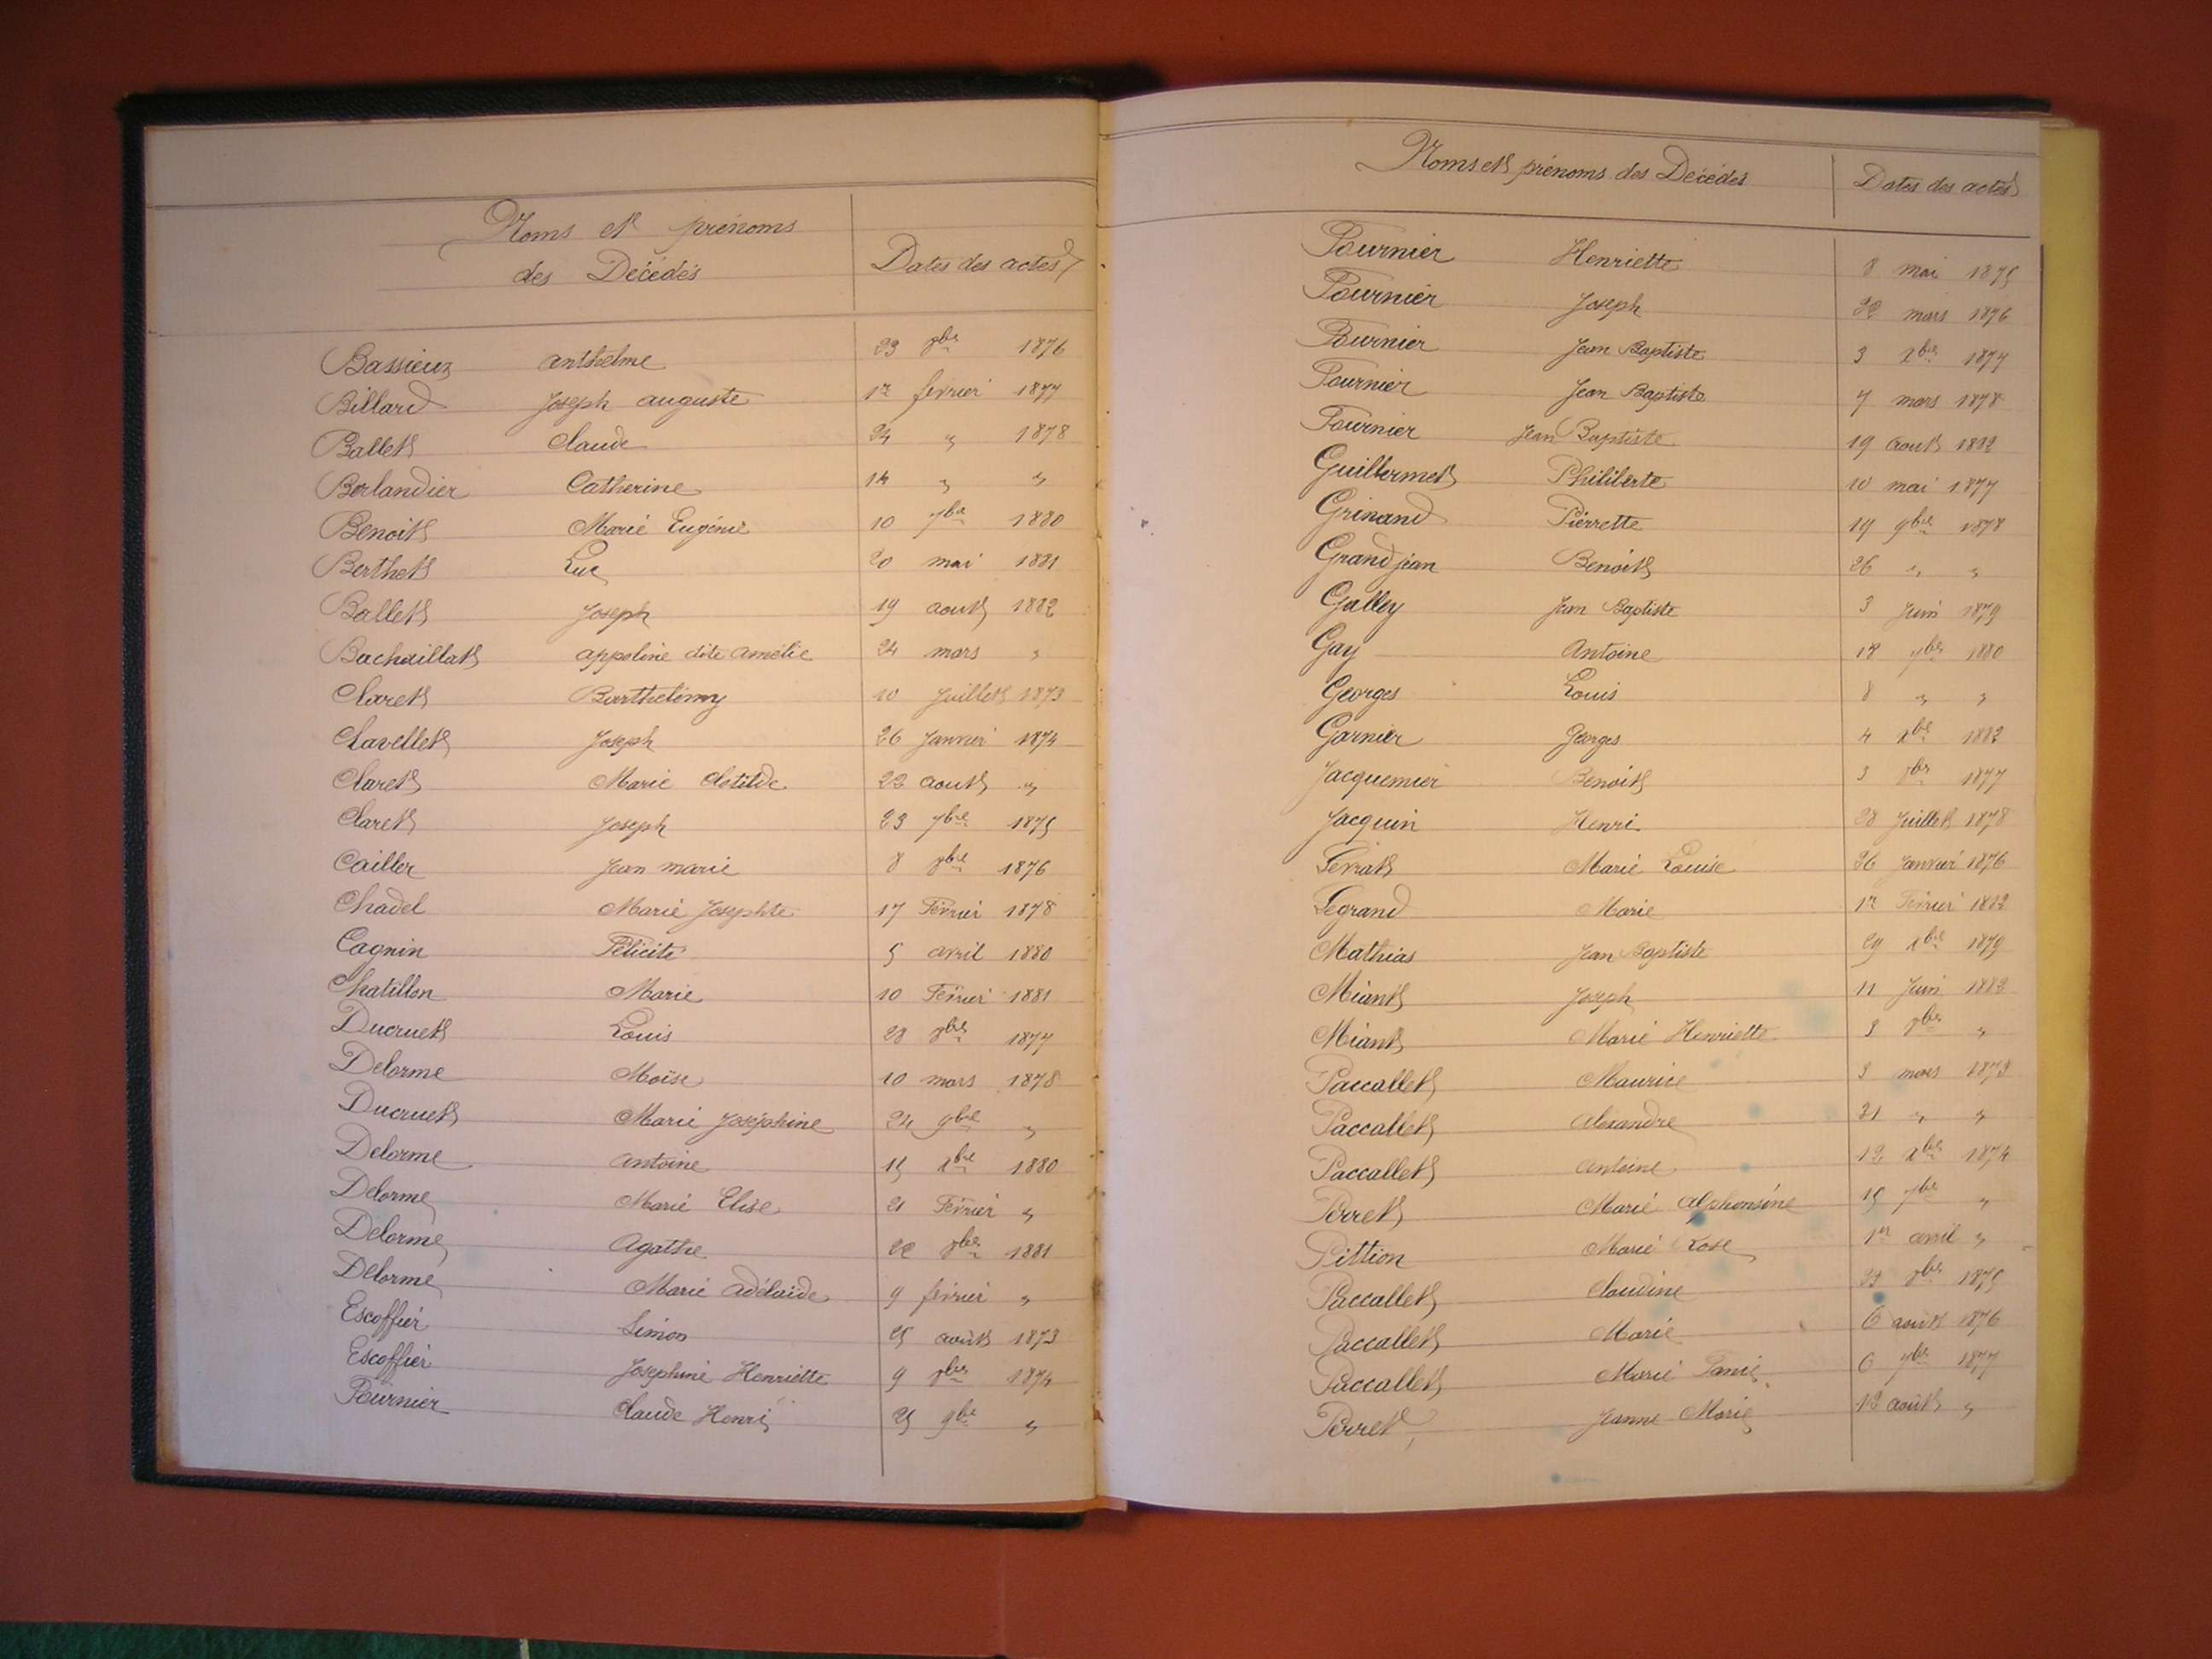 Noms et prénoms
des Décédés
Dates des actes
Bassieux anthelme 23 8bre 1876
Billard Joseph auguste 1er février 1877
Ballet Claude 24 " 1878
Berlandier Catherine 14 " "
Benoit Marie Eugénie 10 7bre 1880
Berthet Luc 20 mai 1881
Ballet Joseph 19 aout 1882
Bachaillat appoline dite amélie 24 mars "
Claret Barthelémy 10 Juillet 1873
Clavellet Joseph 26 Janvier 1874
Claret Marie Clotilde 22 aout "
Claret Joseph 23 7bre 1875
Cailler Jean marie 8 8bre 1876
Chadel Marie Josephte 17 Février 1878
Cagnin Félicité 5 avril 1880
Chatillon Marie 10 Février 1881
Ducruet Louis 28 8bre 1877
Delorme Moïse 10 mars 1878
Ducruet Marie Joséphine 24 9bre "
Delorme antoine 15 Xbre 1880
Delorme Marie Elise 21 Février "
Delorme Agathe 22 8bre 1881
Delorme Marie adélaïde 9 février "
Escoffier Simon 25 août 1873
Escoffier Josephine Henriette 9 8bre 1874
Fournier Claude Henri 25 9bre "
Noms et prénoms des Décédés Dates des actes
Fournier Henriette 8 mai 1875
Fournier Joseph 22 mars 1876
Fournier Jean Baptiste 3 Xbre 1877
Fournier Jean Baptiste 7 mars 1878
Fournier Jean Baptiste 19 aout 1882
Guillermet Philiberte 10 mai 1877
Grinand Pierrette 19 9bre 1878
Grandjean Benoit 26 " "
Galley Jean Baptiste 3 Juin 1879
Gay Antoine 18 7bre 1880
Georges Louis 8 " "
Garnier Georges 4 Xbre 1882
Jacquemier Benoit 3 8bre 1877
Jacquin Henri 28 Juillet 1878
Levrat Marie Louise 26 Janvier 1876
Legrand Marie 1er Février 1882
Mathias Jean Baptiste 29 Xbre 1879
Miant Joseph 11 Juin 1882
Miant Marie Henriette 3 8bre "
Paccallet Maurice 3 mars 1873
Paccallet alexandre 21 " "
Paccallet antoine 12 Xbre 1874
Perret Marie alphonsine 15 7bre "
Pittion Marie Rose 1er avril "
Paccallet Claudine 8bre 1875
Paccallet Marie 6 août 1876
Paccallet Marie 6 7bre 1877
Perret Jeanne Marie 12 août "